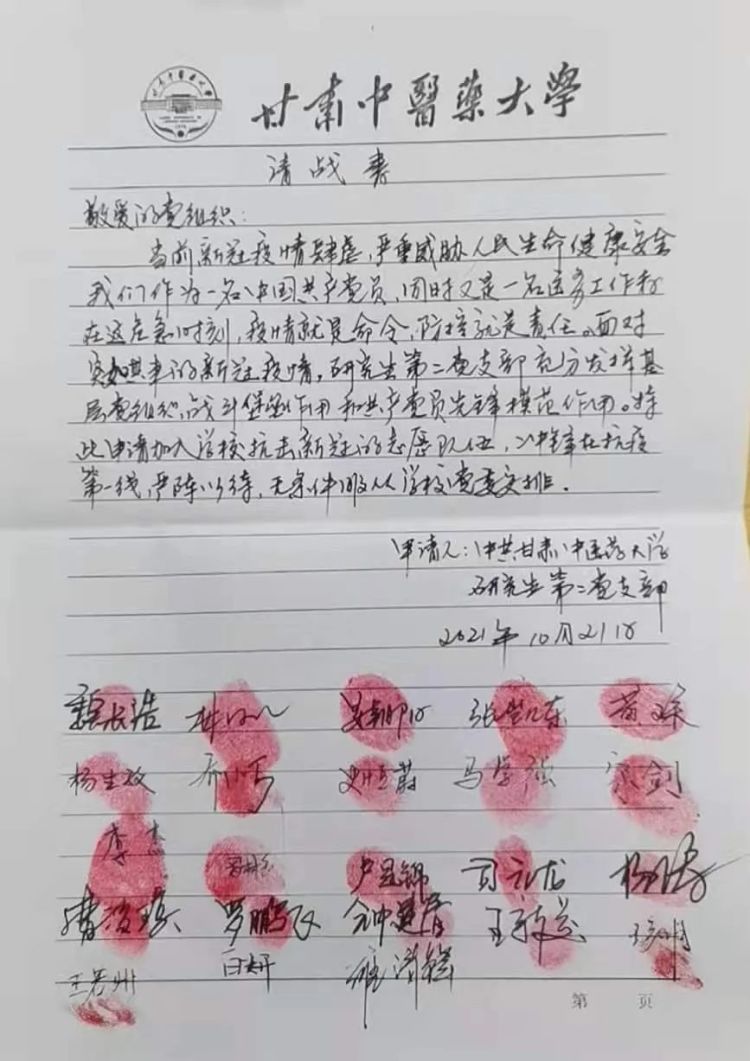 甘肃中醫藥大學
请战书
敬爱的党组织：
当前新冠疫情肆虐，严重威胁人民生命健康安全
我们作为一名中国共产党员，同时又是一名医务工作者
在这危急时刻，疫情就是命令，防控就是责任。面对
突如其来的新冠疫情，研究生第二党支部充分发挥基
层党组织战斗堡垒作用和共产党员先锋模范作用。特
此申请加入学校抗击新冠的志愿队伍，冲锋在抗疫
第一线，严阵以待，无条件服从学校党委安排。
申请人：中共甘肃中医药大学
研究生第二党支部
2021年10月21日
张凯东
杨生政 马学强 宗剑
李杰 卢昱锦
罗鹏飞 王敏
白妍
第 页